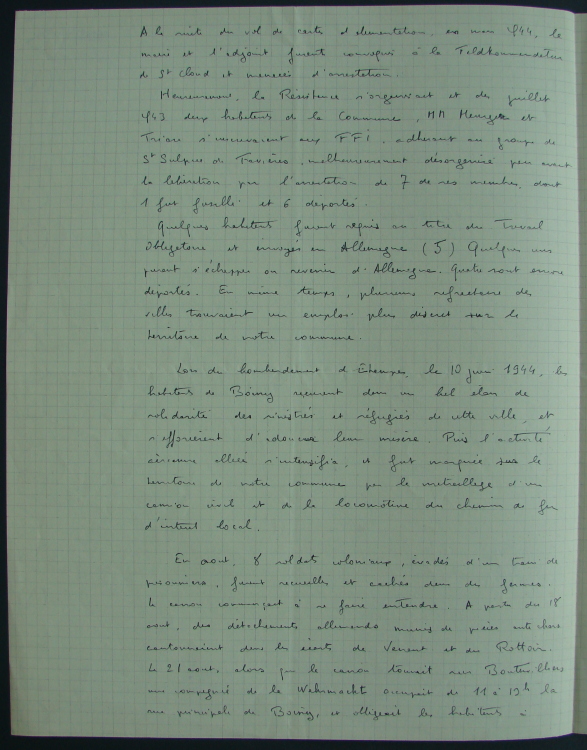 A la suite du vol de cartes d'alimentation, en mars 1944, le
maire et l'adjoint furent convoqués à la Feldkommandatur
de St Cloud et menacés d'arrestation.
Heureusement, la Résistance s'organisait et dès juillet
1943 deux habitants de la Commune, MM et
s'inscrivaient aux FFI, adhérant au groupe de
St Sulpice de Favières, malheureusement désorganisé peu avant
la libération par l'arrestation de 7 de ses membres, dont
1 fut fusillé et 6 déportés.
Quelques habitants furent requis au titre du Travail
Obligatoire et envoyés en Allemagne (5) Quelques uns
purent s'échapper ou revenir d'Allemagne. Quatre sont encore
déportés. En même temps, plusieurs réfractaires des
villes trouvaient un emploi plus discret sur le
territoire de notre commune.
Lors du bombardement d'Etampes, le 10 juin 1944, les
habitants de Boissy reçurent dans un bel élan de
solidarité des sinistrés et réfugiés de cette ville, et
s'efforcèrent d'adoucir leur misère. Puis l'activité
aérienne alliée s'intensifia, et fut marquée sur le
territoire de notre commune par le mitraillage d'un
camion civil et de la locomotive du chemin de fer
d'intérêt local.
En aout, 8 soldats coloniaux, évadés d'un train de
prisonniers, furent recueillis et cachés dans des fermes.
Le canon commençait à se faire entendre. A partir du 18
aout, des détachements allemands munis de pièces anti chars
cantonnaient dans les écarts de Venant et du Rottoir.
Le 21 aout, alors que le canon tonnait sur
une compagnie de la Wehrmacht occupait de 11 à 19h la
rue principale de Boissy, et obligeait les habitants à